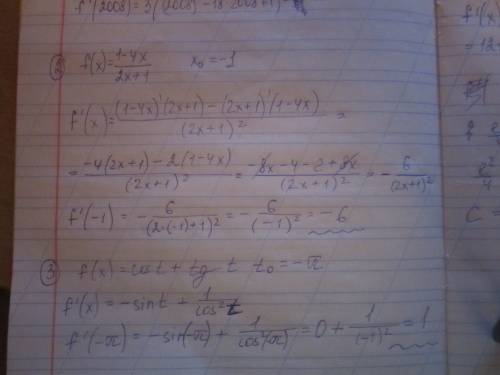 f'(2008) = 3(2008) - 18·2008 + 1)
② f(x) = (1-4x)/(2x+1)    x₀ = -1
f'(x) = ((1-4x)'(2x+1) - (2x+1)'(1-4x))/(2x+1)² =
= (-4(2x+1) - 2(1-4x))/(2x+1)² = (-8x - 4 - 2 + 8x)/(2x+1)² = - 6/(2x+1)²
f'(-1) = - 6/(2·(-1)+1)² = - 6/(-1)² = -6
③ f(x) = cos t + tg t    t₀ = -π
f'(x) = -sin t + 1/cos² t
f'(-π) = -sin(-π) + 1/cos²(-π) = 0 + 1/(-1)² = 1
f'(
= 12
C